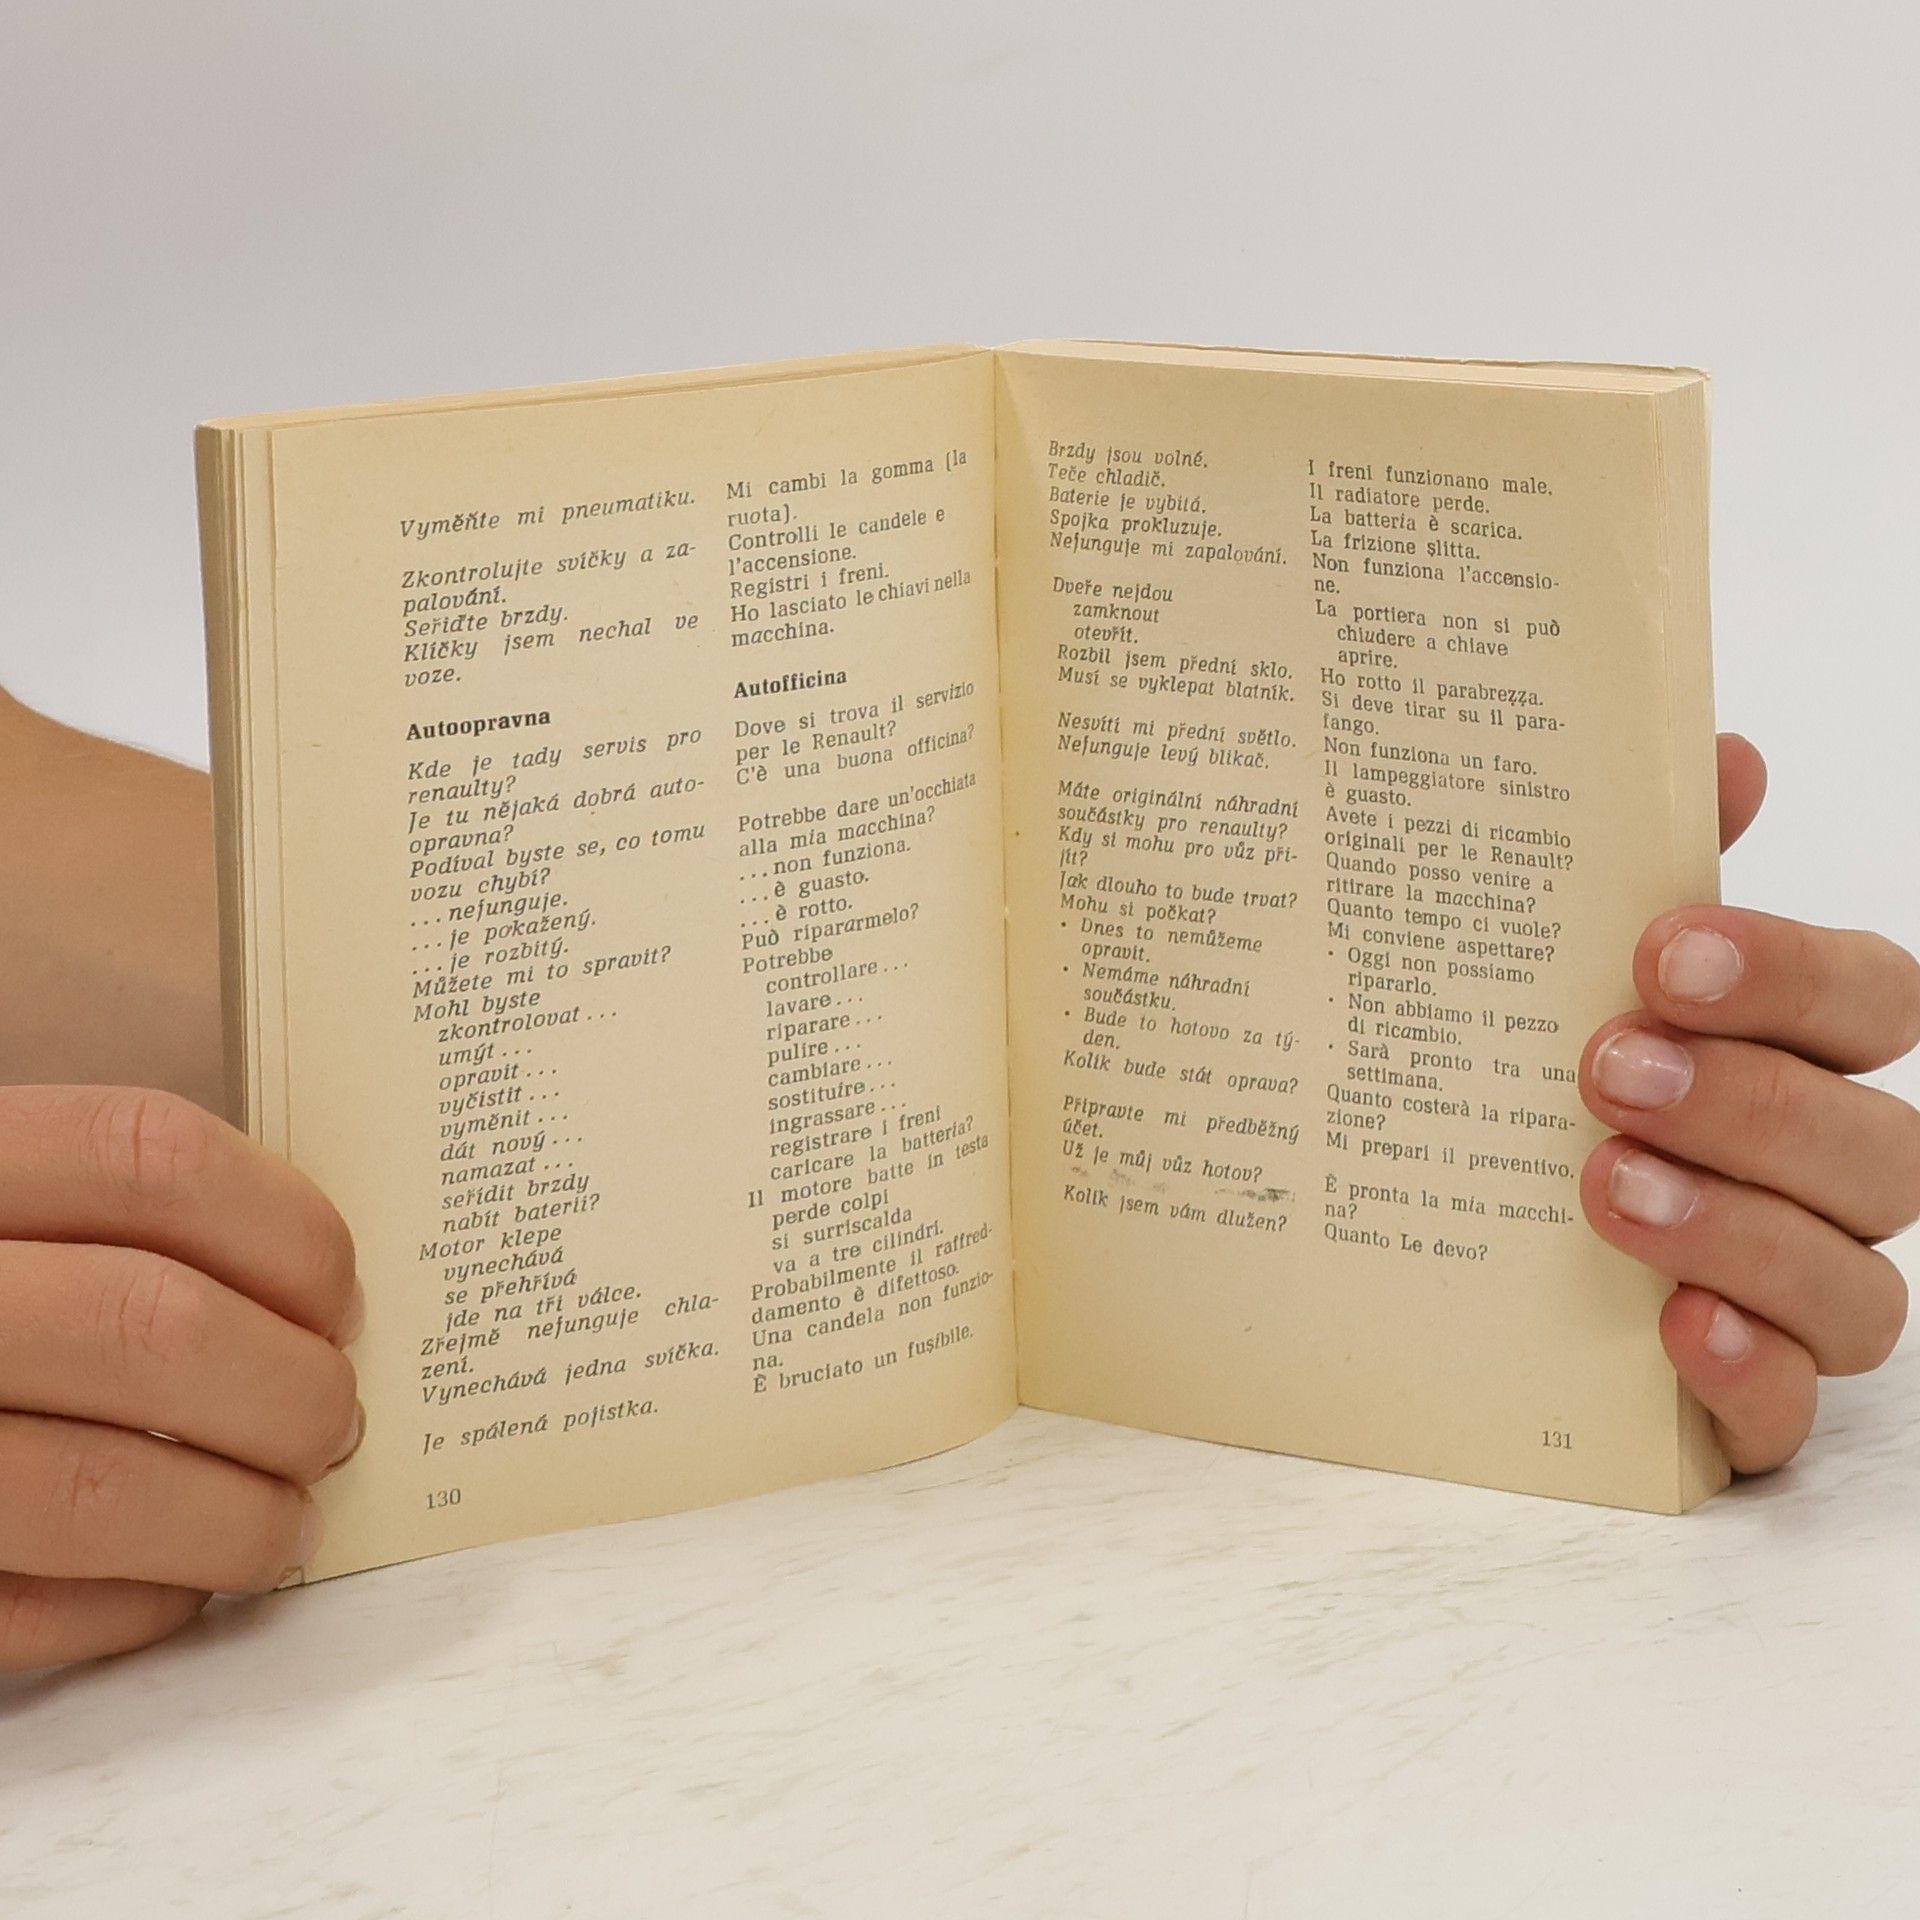 Vyměňte mi pneumatiku.
Zkontrolujte svíčky a za-
palování.
Seřiďte brzdy.
Klíčky jsem nechal ve
voze.
Autoopravna
Kde je tady servis pro
renaulty?
Je tu nějaká dobrá auto-
opravna?
Podíval byste se, co tomu
vozu chybí?
...nefunguje.
...je pokažený.
...je rozbitý.
Můžete mi to spravit?
Mohl byste
zkontrolovat...
umýt...
opravit...
vyčistit...
vyměnit...
dát nový...
namazat...
seřídit brzdy
nabít baterii?
Motor klepe
vynechává
se přehřívá
jde na tři válce.
Zřejmě nefunguje chla-
zení.
Vynechává jedna svíčka.
Je spálená pojistka.
130
Mi cambi la gomma (la
ruota).
Controlli le candele e
l'accensione.
Registri i freni.
Ho lasciato le chiavi nella
macchina.
Autofficina
Dove si trova il servizio
per le Renault?
C'è una buona officina?
Potrebbe dare un'occhiata
alla mia macchina?
...non funziona.
...è guasto.
...è rotto.
Può ripararmelo?
Potrebbe
controllare...
lavare...
riparare...
pulire...
cambiare...
sostituire...
ingrassare...
registrare i freni
caricare la batteria?
Il motore batte in testa
perde colpi
si surriscalda
va a tre cilindri.
Probabilmente il raffred-
damento è difettoso.
Una candela non funzio-
na.
È bruciato un fuşibile.
Brzdy jsou volné.
Teče chladič.
Baterie je vybitá.
Spojka prokluzuje.
Nefunguje mi zapalování.
Dveře nejdou
zamknout
otevřít.
Rozbil jsem přední sklo.
Musí se vyklepat blatník.
Nesvítí mi přední světlo.
Nefunguje levý blikač.
Máte originální náhradní
součástky pro renaulty?
Kdy si mohu pro vůz při-
jít?
Jak dlouho to bude trvat?
Mohu si počkat?
• Dnes to nemůžeme
opravit.
• Nemáme náhradní
součástku.
• Bude to hotovo za tý-
den.
Kolik bude stát oprava?
Připravte mi předběžný
účet.
Už je můj vůz hotov?
Kolik jsem vám dlužen?
I freni funzionano male.
Il radiatore perde.
La batteria è scarica.
La frizione şlitta.
Non funziona l'accensio-
ne.
La portiera non si può
chiudere a chiave
aprire.
Ho rotto il parabrezza.
Si deve tirar su il para-
fango.
Non funziona un faro.
Il lampeggiatore sinistro
è guasto.
Avete i pezzi di ricambio
originali per le Renault?
Quando posso venire a
ritirare la macchina?
Quanto tempo ci vuole?
Mi conviene aspettare?
• Oggi non possiamo
ripararlo.
• Non abbiamo il pezzo
di ricambio.
• Sarà pronto tra una
settimana.
Quanto costerà la ripara-
zione?
Mi prepari il preventivo.
È pronta la mia macchi-
na?
Quanto Le devo?
131